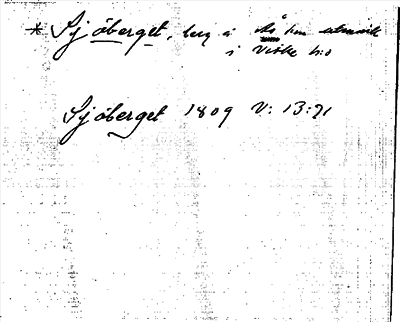 * Sjöberget, berg å Ås hms utmark
i Viske hd
Sjöberget 1809 V: 13:71